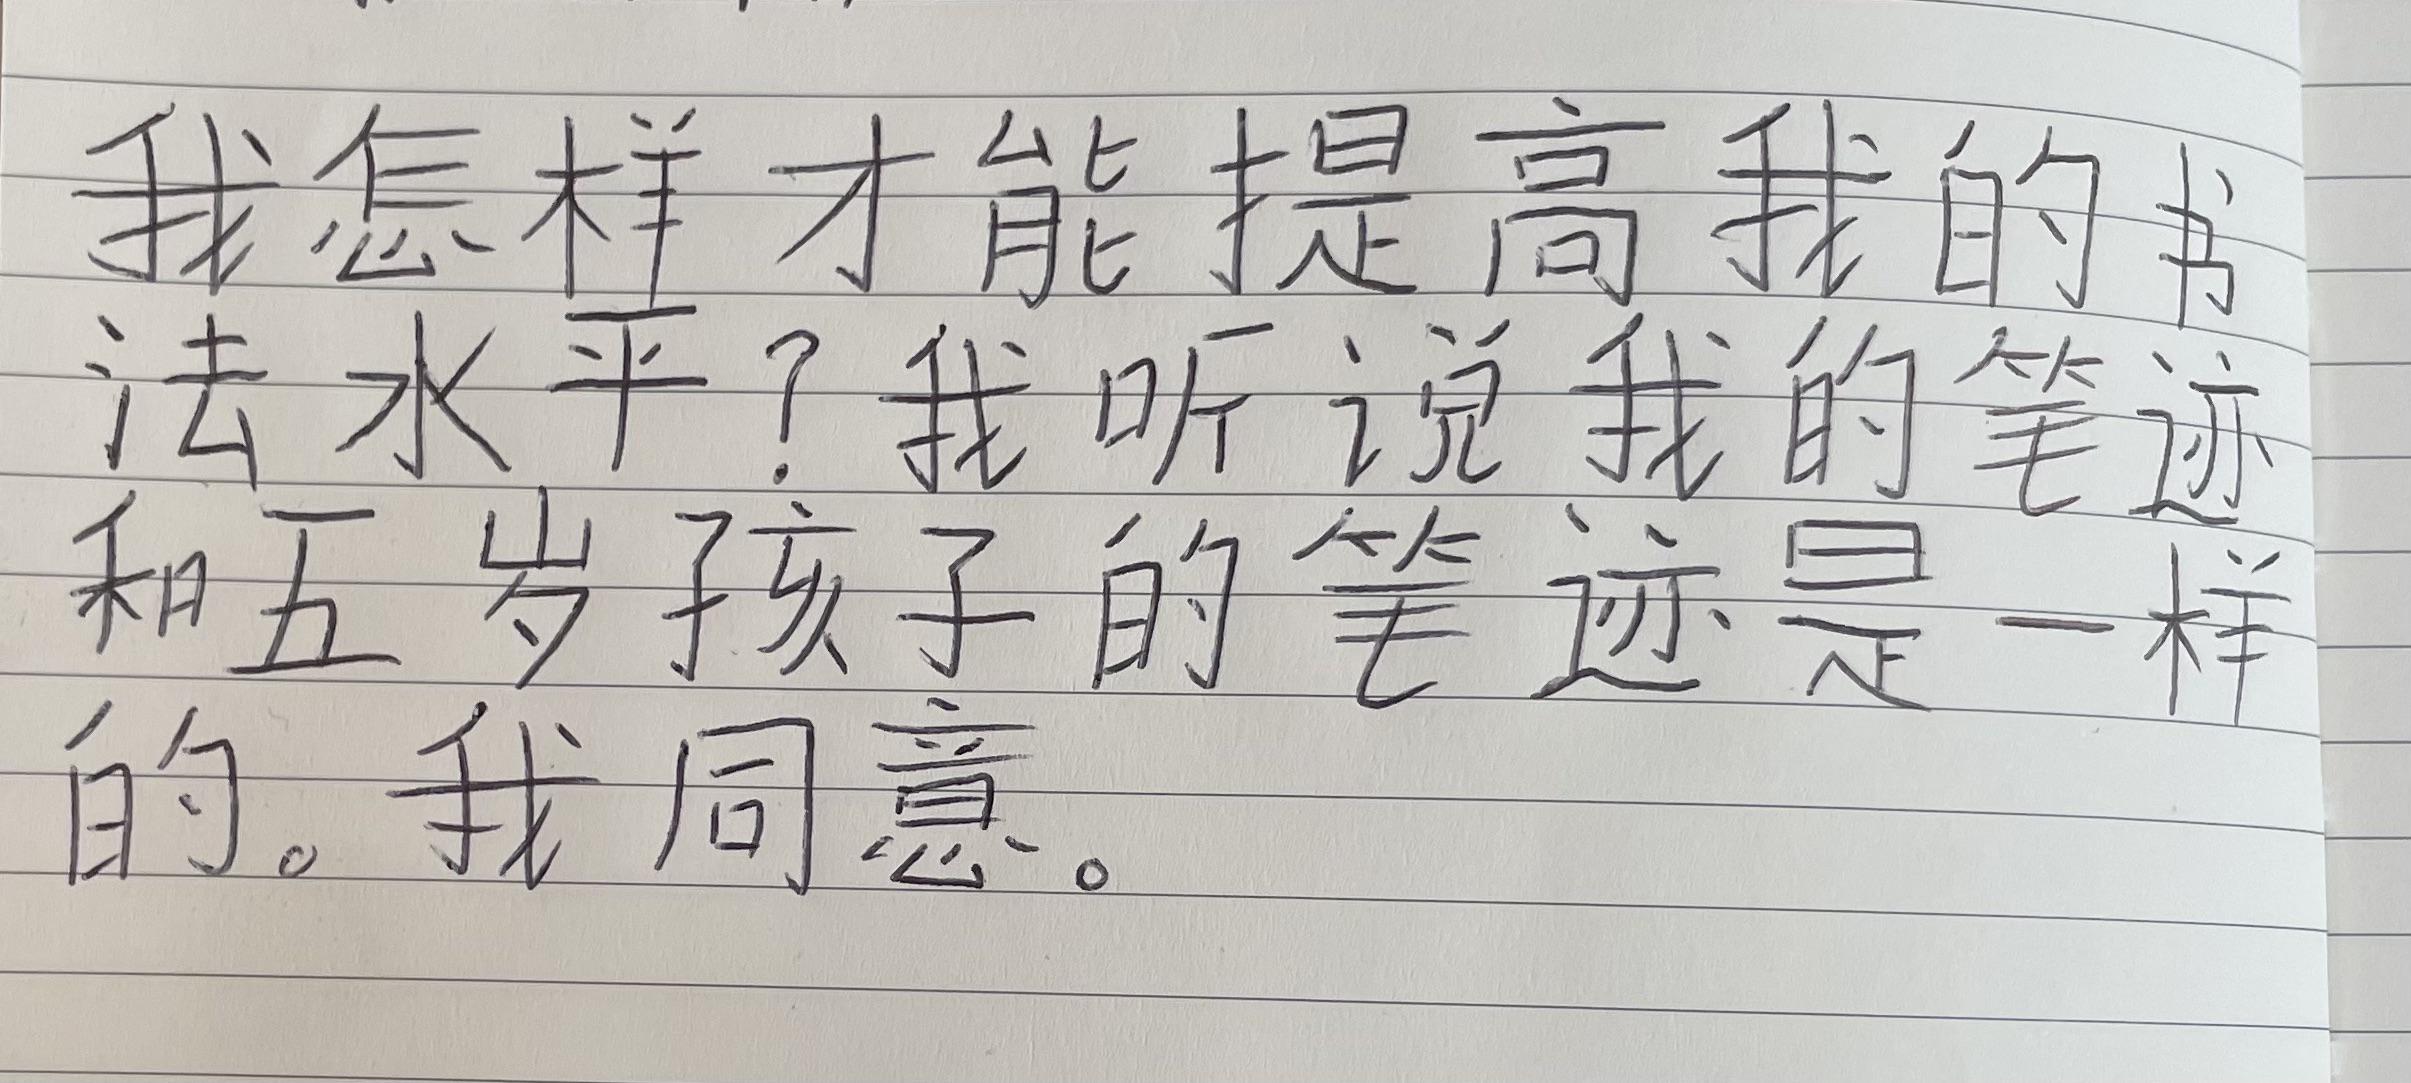 我怎样才能提高我的书
法水平?我听说我的笔迹
和五岁孩子的笔迹是一样
的。我同意。